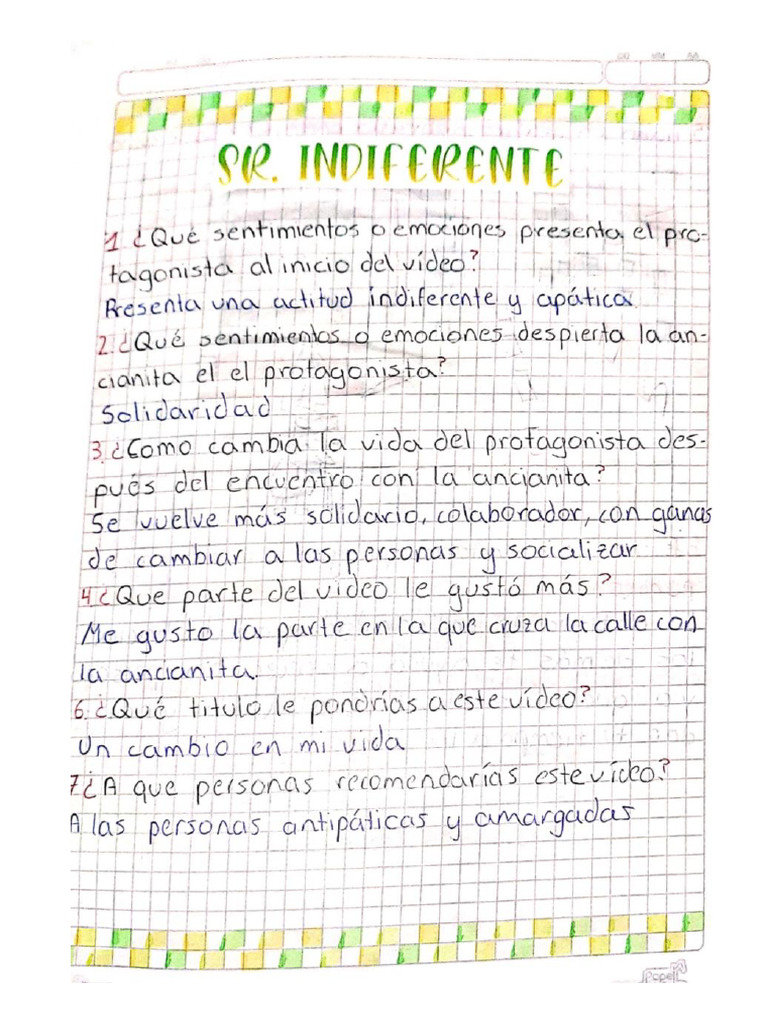 SR. INDIFERENTE
1 ¿Qué sentimientos o emociones presenta el pro-
tagonista al inicio del vídeo?
Presenta una actitud indiferente y apática
2. ¿Qué sentimientos o emociones despierta la an-
cianita el el protagonista?
Solidaridad
3. ¿Como cambia la vida del protagonista des-
pués del encuentro con la ancianita?
Se vuelve más solidario, colaborador, con ganas
de cambiar a las personas y socializar
4 ¿Que parte del video le gustó más?
Me gusto la parte en la que cruza la calle con
la ancianita.
6. ¿Qué titulo le pondrías a este vídeo?
Un cambio en mi vida
7 ¿A que personas recomendarías este vídeo?
A las personas antipáticas y amargadas